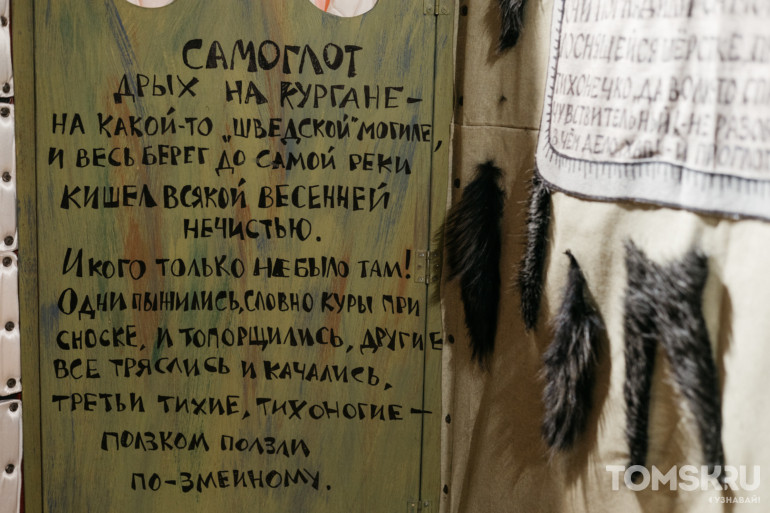 САМОГЛОТ
ДРЫХ НА КУРГАНЕ –
НА КАКОЙ-ТО „ШВЕДСКОЙ" МОГИЛЕ,
И ВЕСЬ БЕРЕГ ДО САМОЙ РЕКИ
КИШЕЛ ВСЯКОЙ ВЕСЕННЕЙ
НЕЧИСТЬЮ.
И КОГО ТОЛЬКО НЕ БЫЛО ТАМ!
ОДНИ ПЫНИЛИСЬ, СЛОВНО КУРЫ ПРИ
СНОСКЕ, И ТОПОРЩИЛИСЬ, ДРУГИЕ
ВСЕ ТРЯСЛИСЬ И КАЧАЛИСЬ,
ТРЕТЬИ ТИХИЕ, ТИХОНОГИЕ –
ПОЛЗКОМ ПОЛЗЛИ
ПО-ЗМЕИНОМУ.
ТИХОНЕЧКО, ДА
ЧУВСТВИТЕЛЬНЫЙ
TOMSK.RU
#УЗНАВАЙ!